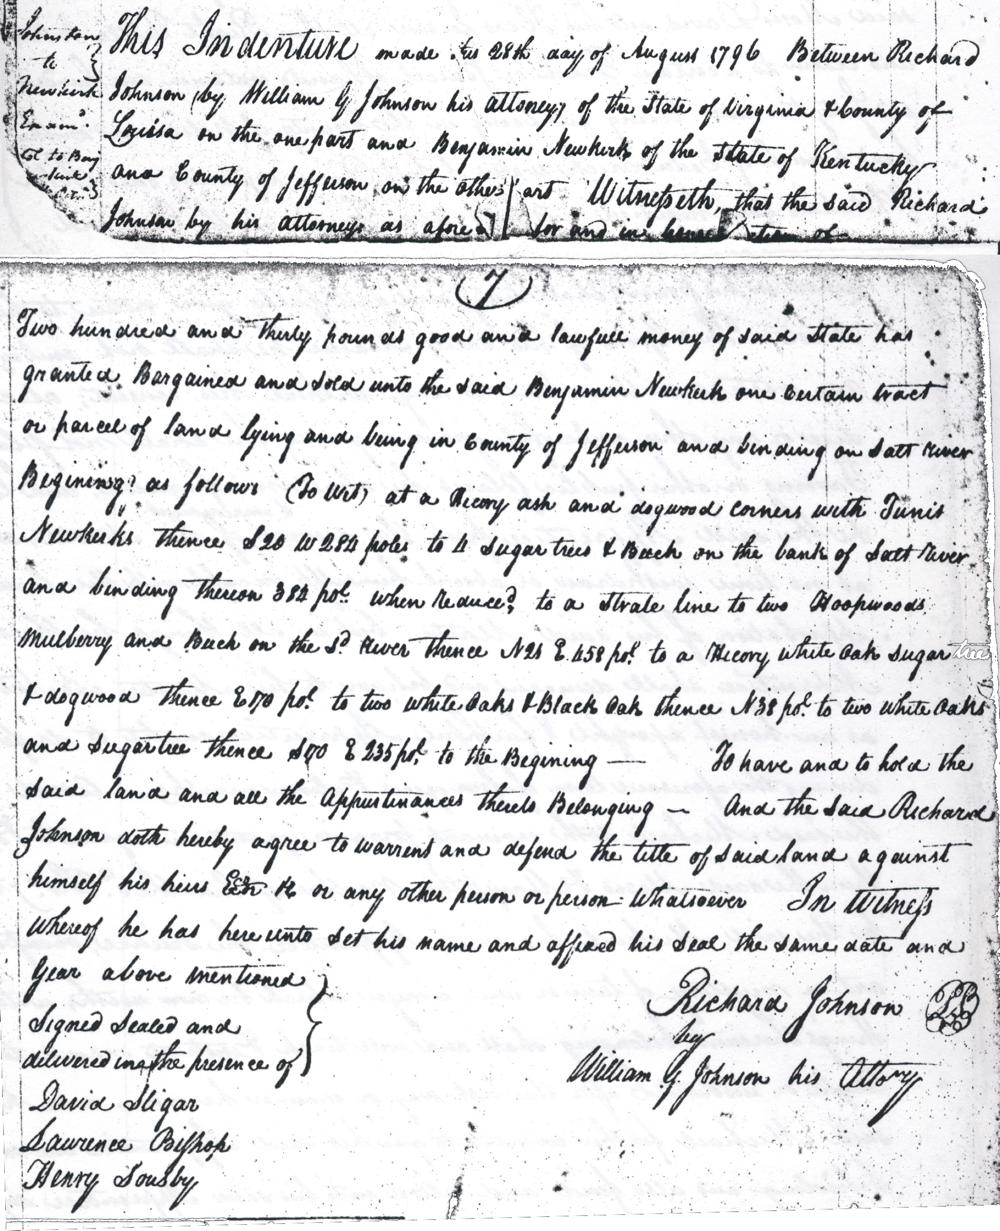 Johnston
to
Newkirk
Exam.d
This Indenture made this 28th day of August 1796 Between Richard
Johnson (by William G Johnson his attorney) of the State of Virginia & County of
Louisa on the one part and Benjamin Newkirk of the State of Kentucky
and County of Jefferson on the other part Witnesseth, that the said Richard
Johnson by his Attorney as afores for and in of
7
Two hundred and thirty pounds good and lawfull money of said State has
granted Bargained and Sold unto the said Benjamin Newkerk one Certain tract
or parcel of land lying and being in County of Jefferson and binding on Salt River
Begining as follows (To Wit) at a Hicory ash and dogwood corners with Tunis
Newkerks thence S20 W 284 poles to 4 Sugar trees & Beech on the bank of Salt River
and binding thereon 384 pol. when reduced to a strate line to two Hoopwoods
Mulberry and Beech on the Sd River thence N25 E 458 pol. to a Hicory white Oak Sugar tree
& dogwood thence E 170 pol. to two white Oaks & Black Oak thence N38 pol. to two white Oaks
and Sugartree thence S70 E 235 pol. to the Begining — To have and to hold the
said land and all the Appurtinances thereto Belonging — And the said Richard
Johnson doth hereby agree to warrent and defend the title of said land against
himself his heirs Exr &c or any other person or person Whatsoever In Witness
whereof he has here unto Set his name and affixed his Seal the same date and
Year above mentioned
Signed Sealed and
delivered in the presence of
Richard Johnson
by
William G Johnson his Attory
David Sligar
Laurence Bishop
Henry Sousby